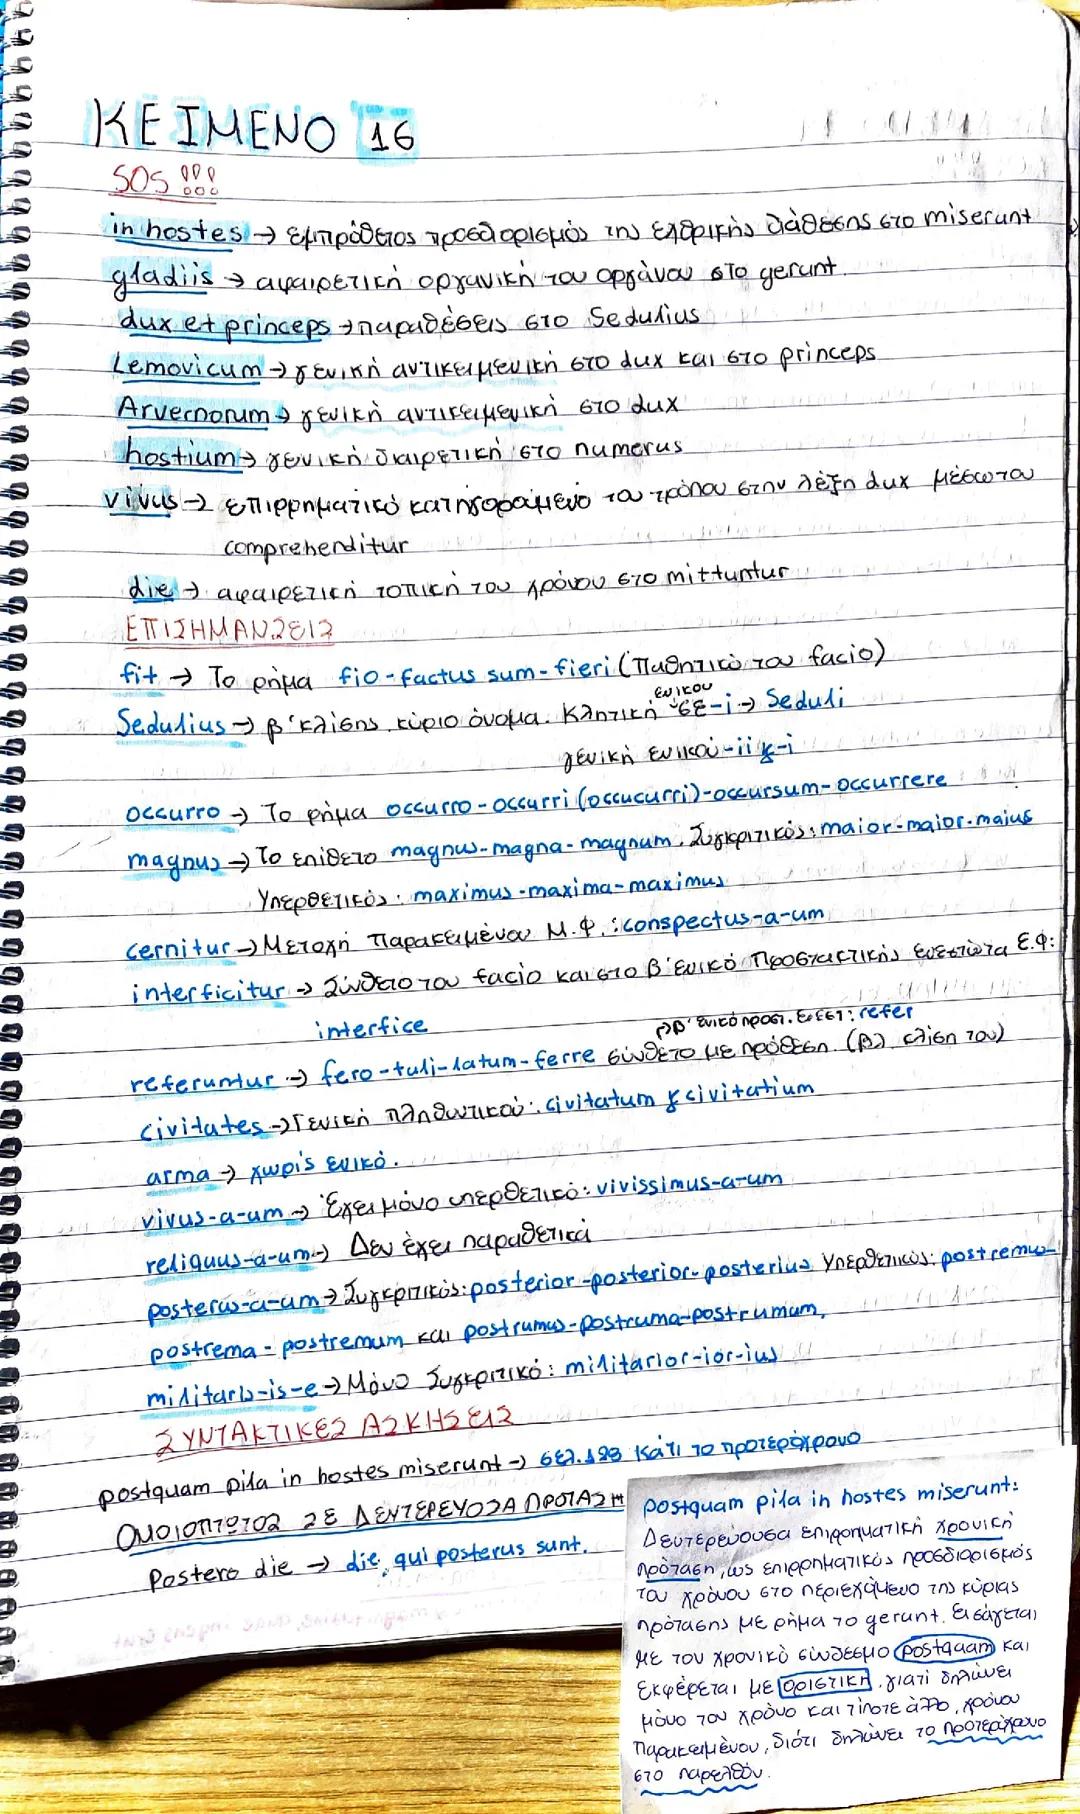 ΚΕΙΜΕΝΟ 16
SOS !!!
in hostes → εμπρόθετος προσδιορισμός της εχθρικής διάθεσης στο miserunt
gladiis → αφαιρετική οργανική του οργάνου στο gerunt
dux et princeps → παραθέσεις στο Sedulius
Lemovicum → γενική αντικειμενική στο dux και στο princeps
Arvernorum → γενική αντικειμενική στο dux
hostium → γενική διαιρετική στο numerus
vivus → επιρρηματικό κατηγορούμενο του τρόπου στην λέξη dux μέσω του
comprehenditur
die → αφαιρετική τοπική του χρόνου στο mittuntur
ΕΠΙΣΗΜΑΝΣΕΙΣ
fit → Το ρήμα fio-factus sum-fieri (Παθητικό του facio)
Sedulius → β' κλίσης κύριο όνομα. Κλητική ενικού σε -i → Seduli
γενική ενικού -ii & -i
occurro → Το ρήμα occurro-occurri (occucurri)-occursum-occurrere
magnus → Το επίθετο magnus-magna-magnum. Συγκριτικός: maior-maior-maius
Υπερθετικός: maximus-maxima-maximus
cernitur → Μετοχή Παρακειμένου Μ.Φ.: conspectus-a-um
interficitur → Σύνθετο του facio και στο β' ενικό Προστακτικής ενεστώτα Ε.Φ:
interfice
→β' ενικό προστ. Ενεστ: refer
referuntur → fero-tuli-latum-ferre σύνθετο με πρόθεση. (βλ κλίση του)
civitates → Γενική πληθυντικού: civitatum & civitatium
arma → χωρίς ενικό.
vivus-a-um → Έχει μόνο υπερθετικό: vivissimus-a-um
reliquus-a-um → Δεν έχει παραθετικά
posterus-a-um → Συγκριτικός: posterior-posterior-posterius Υπερθετικός: postremus-
postrema-postremum και postrumus-postruma-postrumum,
militaris-is-e → Μόνο Συγκριτικό: militarior-ior-ius
ΣΥΝΤΑΚΤΙΚΕΣ ΑΣΚΗΣΕΙΣ
postquam pila in hostes miserunt → σελ.128 κάτι το προτερόχρονο
ΟΜΟΙΟΠΤΩΤΟΣ ΣΕ ΔΕΥΤΕΡΕΥΟΥΣΑ ΠΡΟΤΑΣΗ
Postero die → die, qui posterus sunt.
postquam pila in hostes miserunt:
Δευτερεύουσα επιρρηματική χρονική
πρόταση, ως επιρρηματικός προσδιορισμός
του χρόνου στο περιεχόμενο της κύριας
πρότασης με ρήμα το gerunt. Εισάγεται
με τον χρονικό σύνδεσμο postquam και
εκφέρεται με οριστική, γιατί δηλώνει
μόνο τον χρόνο και τίποτε άλλο, χρόνου
Παρακειμένου, διότι δηλώνει το προτερόχρονο
στο παρελθόν.